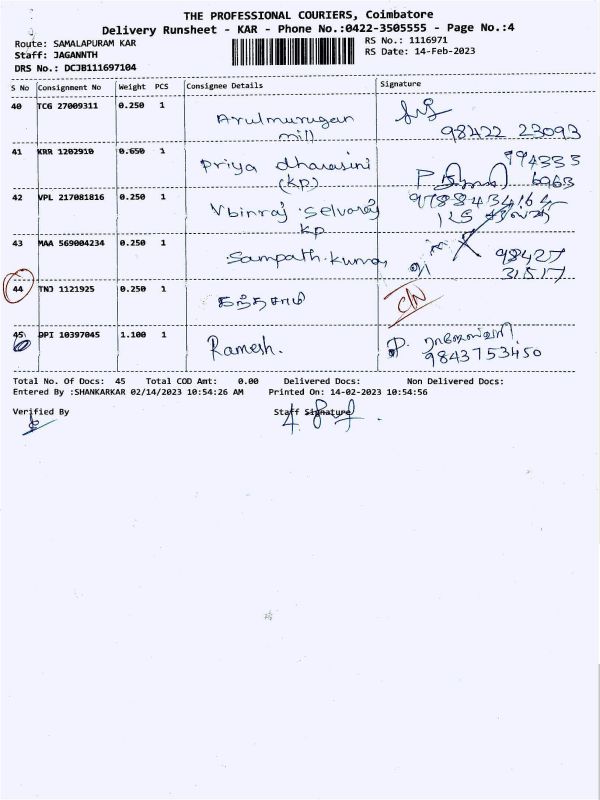 THE PROFESSIONAL COURIERS, Coimbatore
Delivery Runsheet - KAR - Phone No.:0422-3505555 - Page No.:4
Route: SAMALAPURAM KAR
RS No.: 1116971
Staff: JAGANNTH
RS Date: 14-Feb-2023
DRS No.: DCJB111697104
S No Consignment No Weight PCS Consignee Details Signature
40 TCG 27009311 0.250 1 Arulmurugan
mill 98422 23093
41 KRR 1202910 0.650 1 Priya dharasini
(kp)
42 VPL 217081816 0.250 1 selvaraj 9788434164
kp
43 MAA 569004234 0.250 1 Sampath.kumar 98427
31517
44 TNJ 1121925 0.250 1 கந்தசாமி C/N
45 DPI 10397045 1.100 1 Ramesh.
9843753450
Total No. Of Docs: 45 Total COD Amt: 0.00 Delivered Docs: Non Delivered Docs:
Entered By :SHANKARKAR 02/14/2023 10:54:26 AM Printed On: 14-02-2023 10:54:56
Verified By Staff Signature